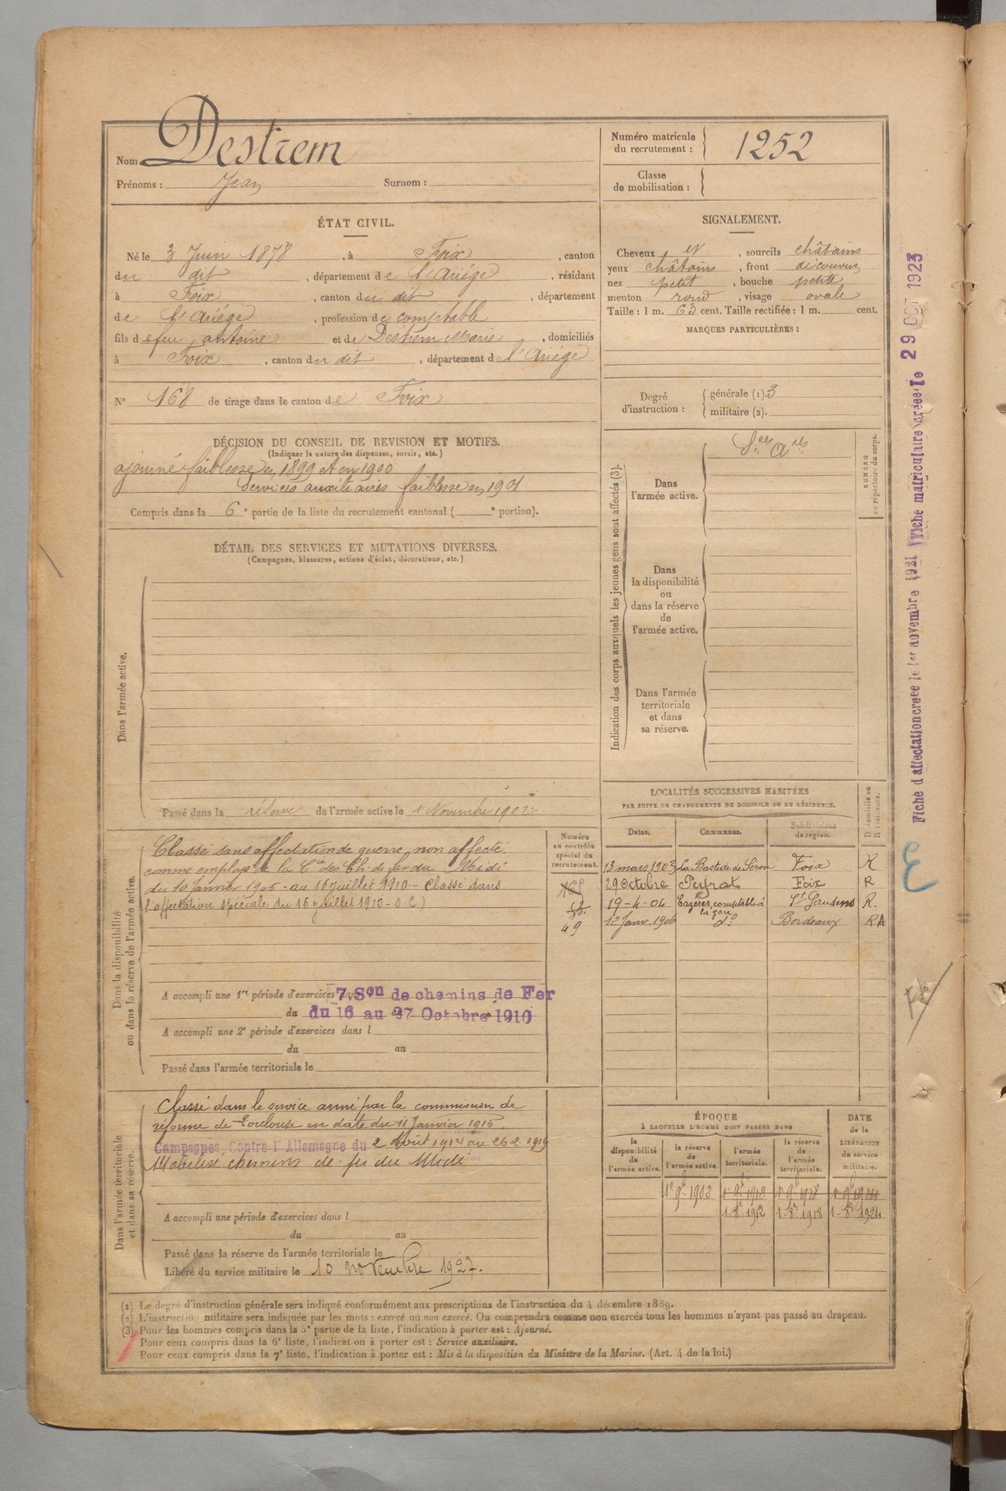 Nom Destrem
Prénoms : Jean Surnom :
Numéro matricule du recrutement : 1252
Classe de mobilisation :
ÉTAT CIVIL.
Né le 3 Juin 1878, à Foix, canton
du dit, département de l'Ariège, résidant
à Foix, canton du dit, département
de l'Ariège, profession de comptable
fils de feu antoine et de Destrem Marie, domiciliés
à Foix, canton du dit, département de l'Ariège
N° 168 de tirage dans le canton de Foix
SIGNALEMENT.
Cheveux et, sourcils châtains
yeux châtains, front découvert
nez petit, bouche petite
menton rond, visage ovale
Taille : 1 m. 63 cent. Taille rectifiée : 1 m. cent.
MARQUES PARTICULIÈRES :
Degré d'instruction : générale (1) 3
militaire (2).
DÉCISION DU CONSEIL DE REVISION ET MOTIFS.
(Indiquer la nature des dispenses, sursis, etc.)
ajourné faiblesse en 1899 et en 1900
Services auxiliaires faiblesse en 1901
Compris dans la 6e partie de la liste du recrutement cantonal ( e portion).
DÉTAIL DES SERVICES ET MUTATIONS DIVERSES.
(Campagnes, blessures, actions d'éclat, décorations, etc.)
Dans l'armée active.
Passé dans la réserve de l'armée active le 1 Novembre 1902
Indication des corps auxquels les jeunes gens sont affectés (3).
Dans l'armée active.
Sces ares
NUMÉRO au répertoire du corps.
Dans la disponibilité ou dans la réserve de l'armée active.
Dans l'armée territoriale et dans sa réserve.
Dans la disponibilité ou dans la réserve de l'armée active.
Classé sans affectation de guerre, non affecté
comme employé à la Cie des Ch. de fer du Midi
du 12 Janvier 1906 - au 16 juillet 1910 - Classé dans
l'affectation spéciale du 16 juillet 1910 - S.C)
Numéro au contrôle spécial du recrutement.
49
A accompli une 1re période d'exercices 7. Son de chemins de Fer
du 16 au 27 Octobre 1910
A accompli une 2e période d'exercices dans l
du au
Passé dans l'armée territoriale le
LOCALITÉS SUCCESSIVES HABITÉES
PAR SUITE DE CHANGEMENTS DE DOMICILE OU DE RÉSIDENCE.
Dates. Communes. Subdivisions de région. D domicile ou R résidence.
13 mars 1903 La Bastide de Sérou Foix R
29 Octobre Peyrat Foix R
19-4-04 Cazères, comptable à la gare St Gaudens R.
12 Janv. 1906 do Bordeaux RA
Dans l'armée territoriale et dans sa réserve.
Classé dans le service armé par la commission de
réforme de Toulouse en date du 11 Janvier 1915
Campagnes, Contre l'Allemagne du 2 Août 1914 au 26 2 1919
Mobilisé chemins de fer du Midi
A accompli une période d'exercices dans l
du au
Passé dans la réserve de l'armée territoriale le
Libéré du service militaire le 10 novembre 1927.
ÉPOQUE
À LAQUELLE L'HOMME DOIT PASSER DANS
la disponibilité de l'armée active. la réserve de l'armée active. l'armée territoriale. la réserve de l'armée territoriale.
DATE de la LIBÉRATION du service militaire.
1 9e 1902
(1) Le degré d'instruction générale sera indiqué conformément aux prescriptions de l'instruction du 4 décembre 1889.
(2) L'instruction militaire sera indiquée par les mots : exercé ou non exercé. On comprendra comme non exercés tous les hommes n'ayant pas passé au drapeau.
(3) Pour les hommes compris dans la 5e partie de la liste, l'indication à porter est : Ajourné.
Pour ceux compris dans la 6e liste, l'indication à porter est : Service auxiliaire.
Pour ceux compris dans la 7e liste, l'indication à porter est : Mis à la disposition du Ministre de la Marine. (Art. 4 de la loi.)
Fiche d'affectation créée le 1er novembre 1921 Fiche matriculaire créée le 29 OCT 1923